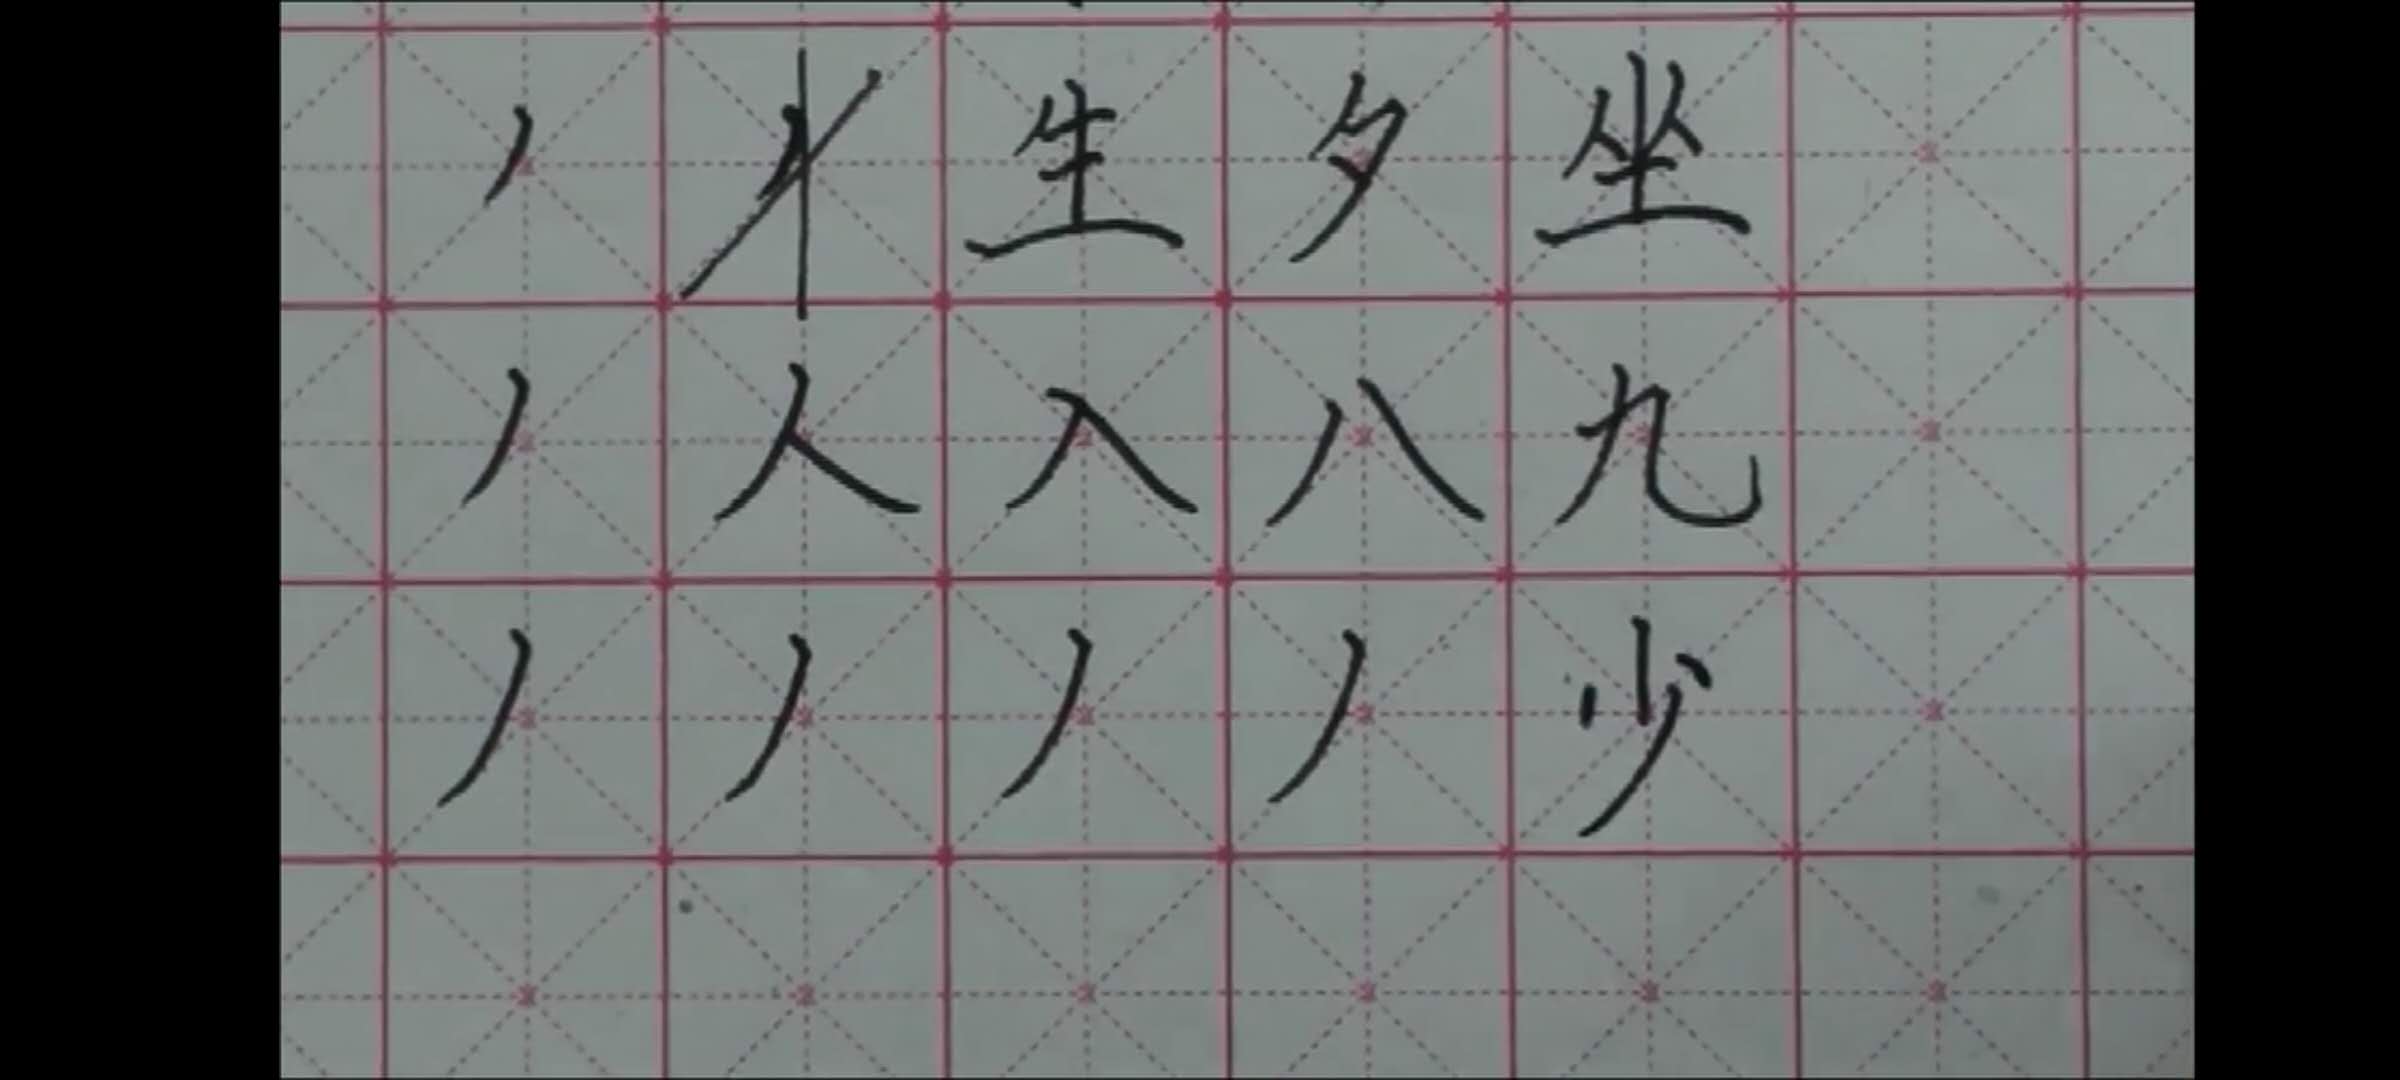 丿 生 夕 坐
丿 人 入 八 九
丿 丿 丿 丿 少